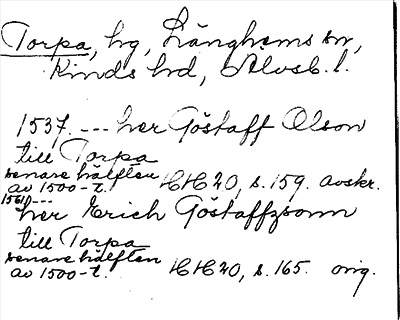 Torpa, hg, Länghems sn,
Kinds hd, Älvsb. l.
1537. --- her Göstaff Olson
till Torpa
senare hälften
av 1500-t. HH 20, s. 159. avskr.
1561) ---
her Erich Göstaffzsonn
till Torpa
senare hälften
av 1500-t. HH 20, s. 165. orig.